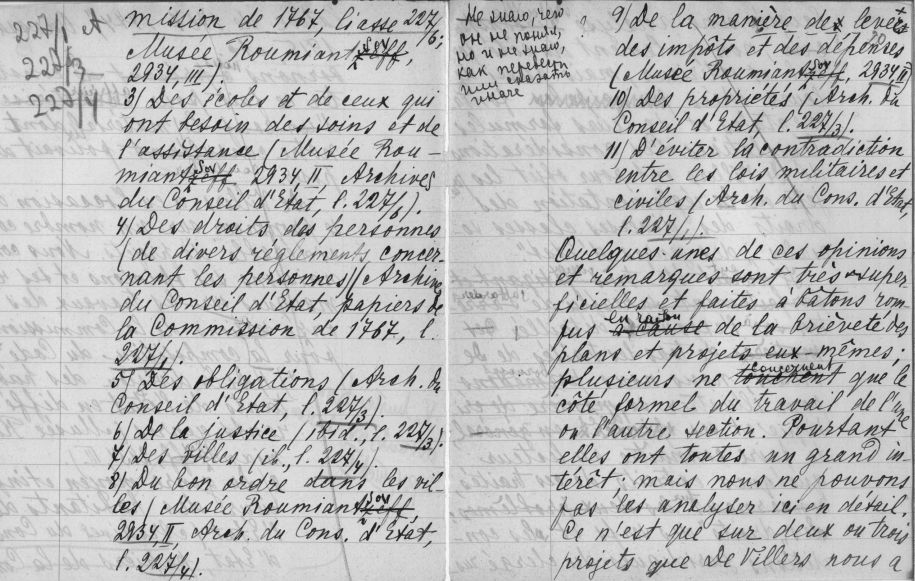 227/1 A
225/3
227/4
mission de 1767, liasse 227/6;
Musée Roumiantzeff sov,
2934 III).
3) Des écoles et de ceux qui
ont besoin des soins et de
l'assistance (Musée Rou-
miantzeff sov 2934 II, Archives
du Conseil d'Etat, l. 227/6).
4) Des droits des personnes
(de divers réglements concer-
nant les personnes) (Archives
du Conseil d'Etat, papiers de
la Commission de 1767, l.
227/1).
5) Des obligations (Arch. du
Conseil d'Etat, l. 227/3).
6) De la justice (ibid., l. 227/3).
7) Des villes (ib., l. 227/4).
8) Du bon ordre dans les vil-
les (Musée Roumiantzeff sov
2934 II, Arch. du Cons. d'Etat,
l. 227/4).
Не знаю, чего
он не понял,
но и не знаю,
как перевести
или сказать
иначе
?
9) De la manière des levées
des impôts et des dépenses
(Musée Roumiantzeff sov, 2934 II)
10) Des propriétés (Arch. du
Conseil d'Etat, l. 227/3).
11) D'éviter la contradiction
entre les lois militaires et
civiles (Arch. du Cons. d'Etat,
l. 227/1).
Quelques-unes de ces opinions
et remarques sont très super
ficielles et faites à bâtons rom
pus à cause en raison de la brièveté des
plans et projets eux-mêmes;
plusieurs ne touchent concernent que le
côté formel du travail de l'une
ou l'autre section. Pourtant
elles ont toutes un grand in-
térêt; mais nous ne pouvons
pas les analyser ici en détail.
Ce n'est que sur deux ou trois
projets que De Villers nous a